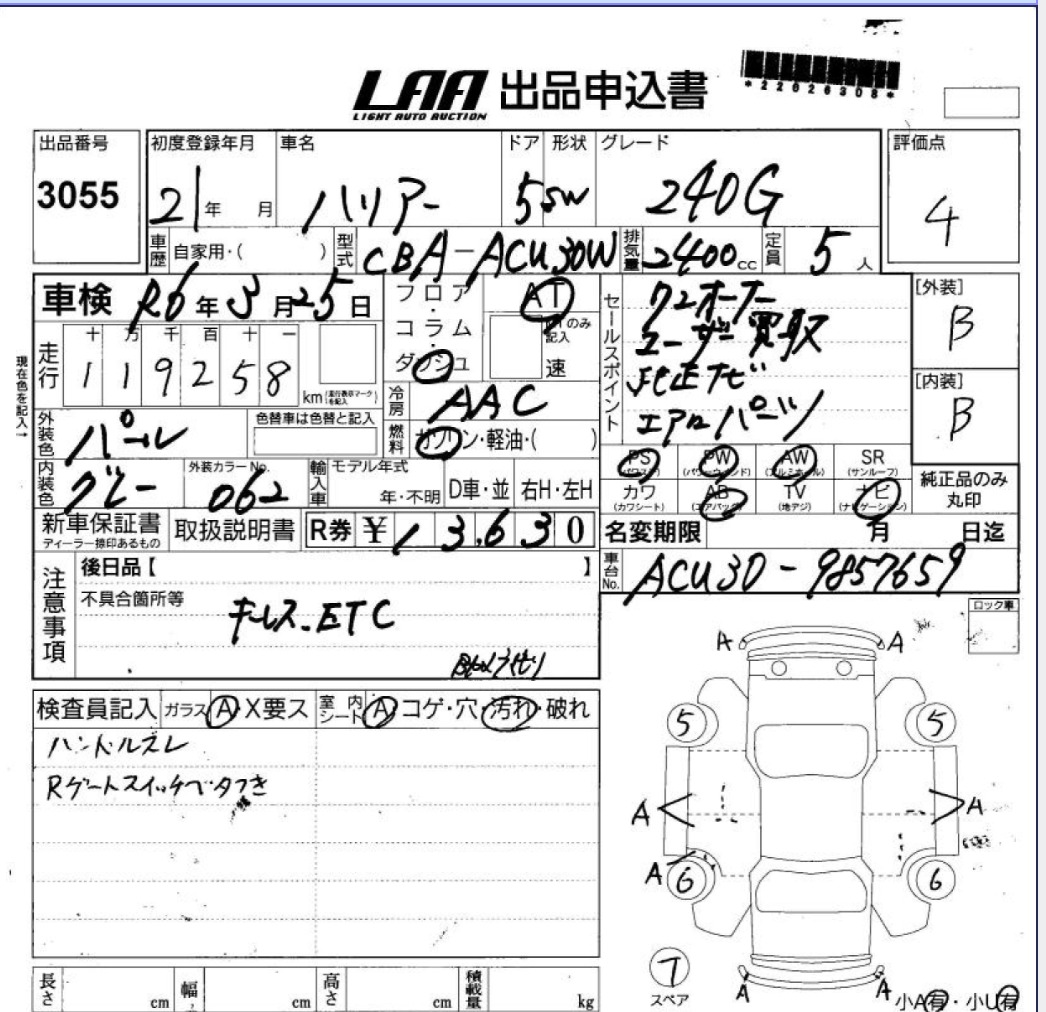 LAA 出品申込書
LIGHT AUTO AUCTION
*22026308*
出品番号 初度登録年月 車名 ドア 形状 グレード 評価点
3055 21年 月 ハリアー 5 SW 240G 4
車歴 自家用・( ) 型式 CBA-ACU30W 排気量 2400cc 定員 5人
車検 R6年3月25日
フロア・コラム・ダッシュ AT
ATのみ記入 速
セールスポイント
ワンオーナー
ユーザー買取
純正ナビ
エアロパーツ
[外装] B
[内装] B
現在色を記入→
走行 十 万 千 百 十 一
119258 km (走行表示マークを記入)
冷房 AAC
外装色 パール 色替車は色替と記入
燃料 ガソリン・軽油・( )
内装色 グレー 外装カラーNo. 062
輸入車 モデル年式 年・不明 D車・並 右H・左H
PS (パワステ) PW (パワーウィンド) AW (アルミホイール) SR (サンルーフ)
カワ (カワシート) AB (エアバッグ) TV (地デジ) ナビ (ナビゲーション)
純正品のみ丸印
新車保証書 ディーラー捺印あるもの 取扱説明書 R券 ¥13,630
名変期限 月 日迄
車台No. ACU30-9857659
注意事項
後日品【 】
不具合箇所等
キーレス.ETC
ロック車
検査員記入 ガラス A・X要ス 室内シート A・コゲ・穴・汚れ・破れ
ハンドルズレ
Rゲートスイッチベタつき
A A
5 5
A A
A 6 6
7
スペア
A A
小A有・小U有
長さ cm 幅 cm 高さ cm 積載量 kg